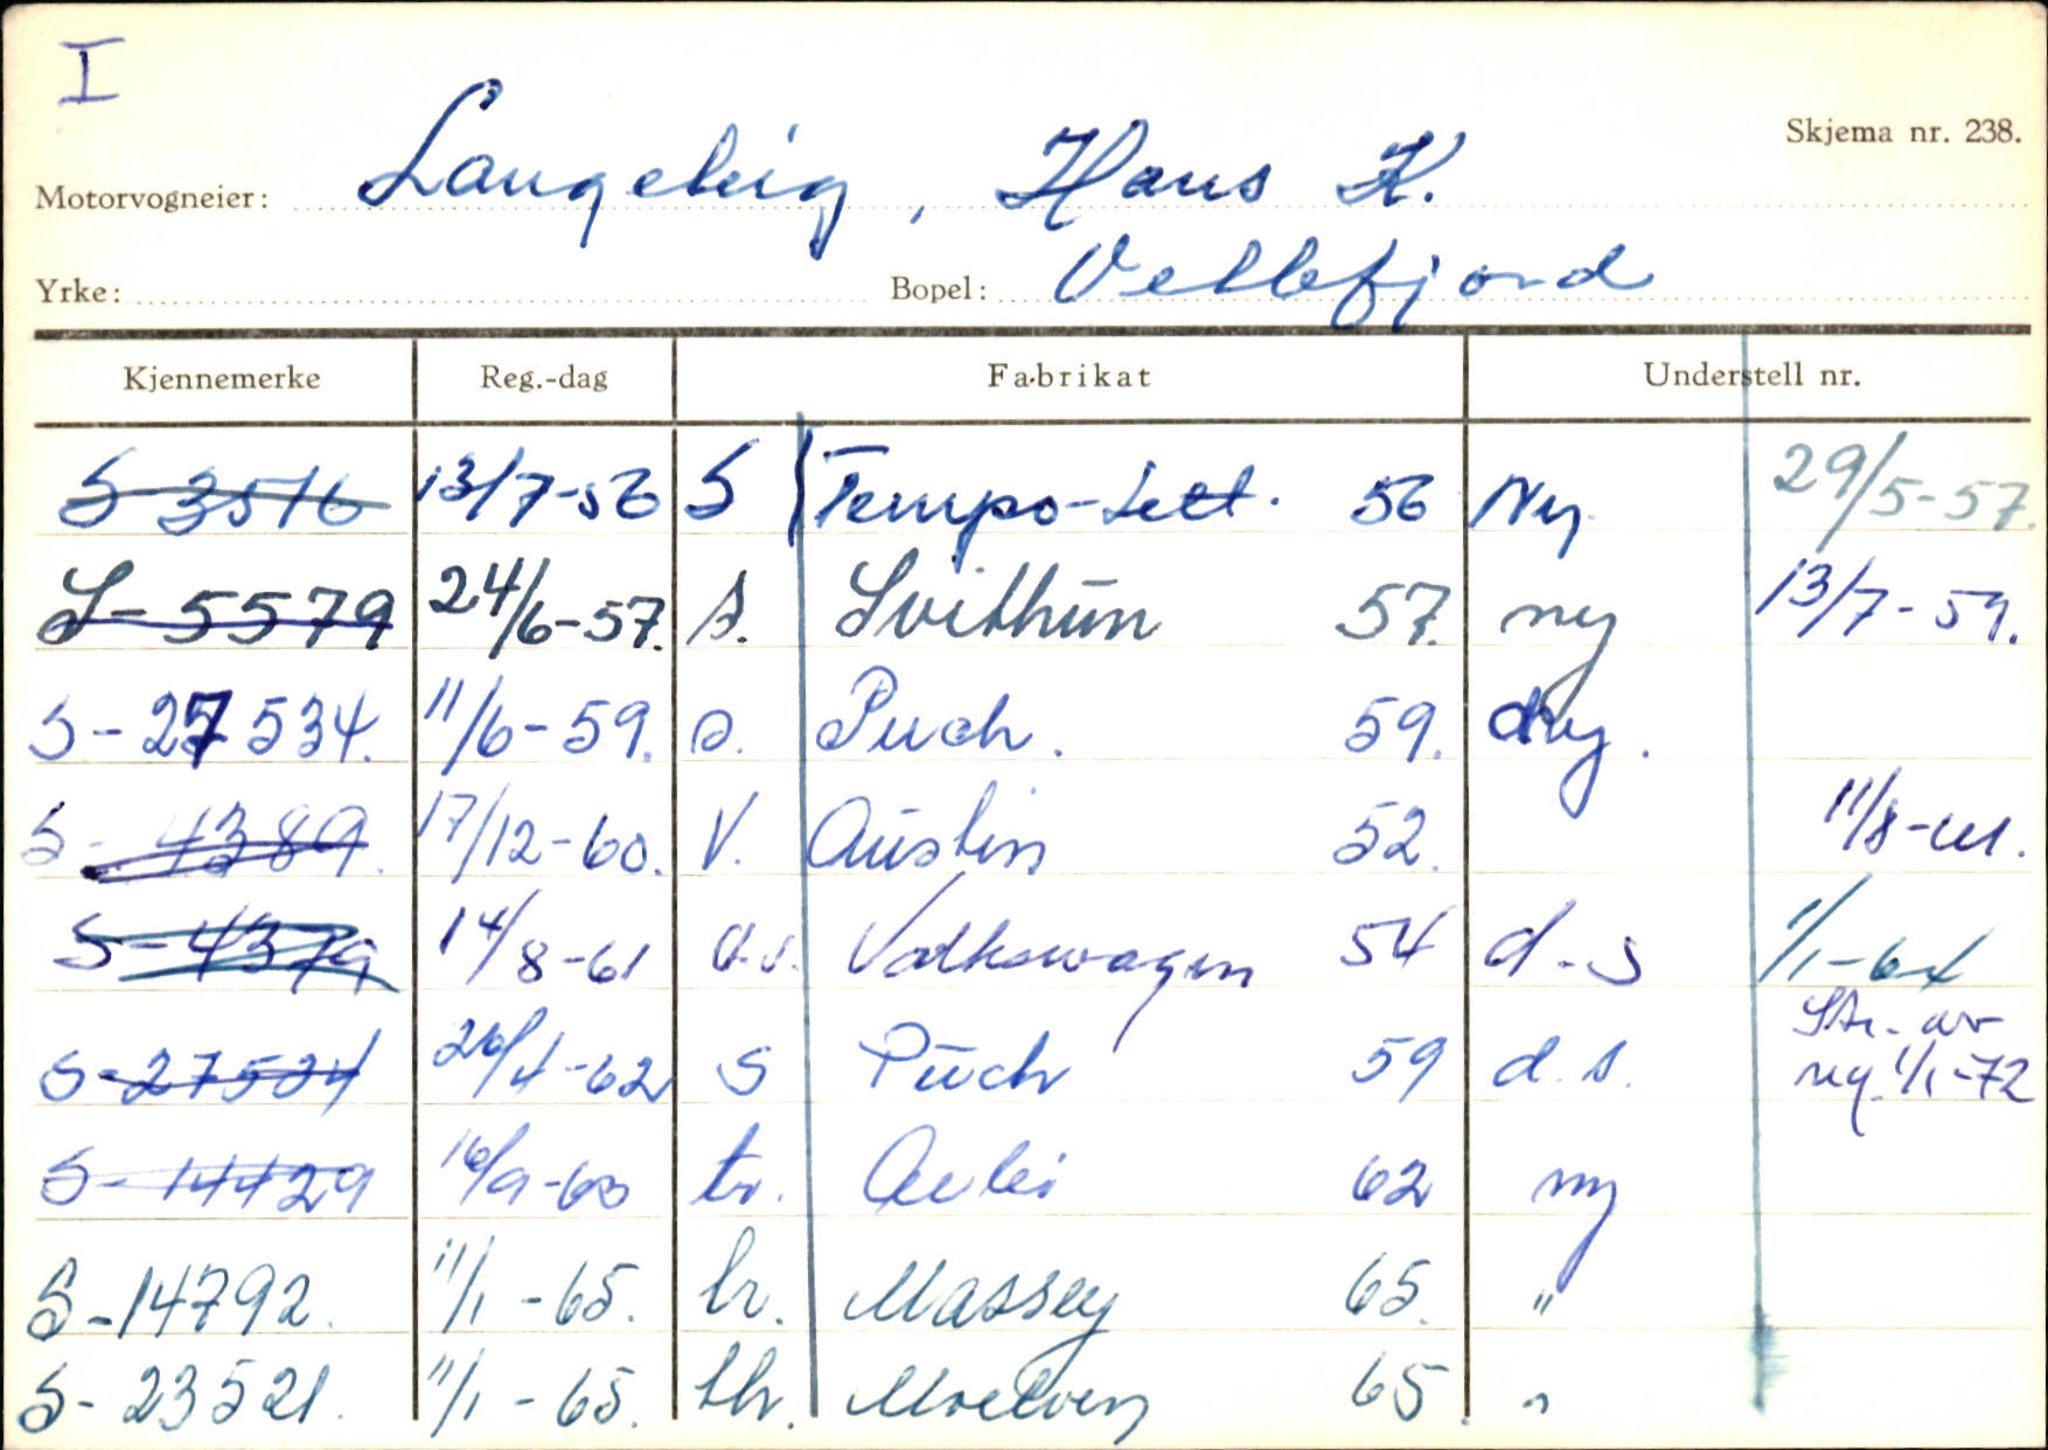 I
Skjema nr. 238.
Motorvogneier: Laugeleig, Hans K.
Yrke: Bopel: Vetlefjord
Kjennemerke Reg.-dag Fabrikat Understell nr.
S-3516 13/7-56 S Tempo-Lett. 56 Ny. 29/5-57.
S-5579 24/6-57. s. Svithun 57. ny 13/7-59.
S-27534. 11/6-59. s. Puch. 59. Ny.
S-4389. 17/12-60. V. Austin 52. 11/8-61.
S-4379 14/8-61 Volkswagen 54 d-s 1/1-64
S-27534 26/4-62 S Puch 59 d.s. Str. av
reg. 1/1-72
S-14429 16/9-63 tr. 62 ny
S-14792. 11/1-65. tr. Massey 65. "
S-23521. 11/1-65. thr. Moelven 65. "